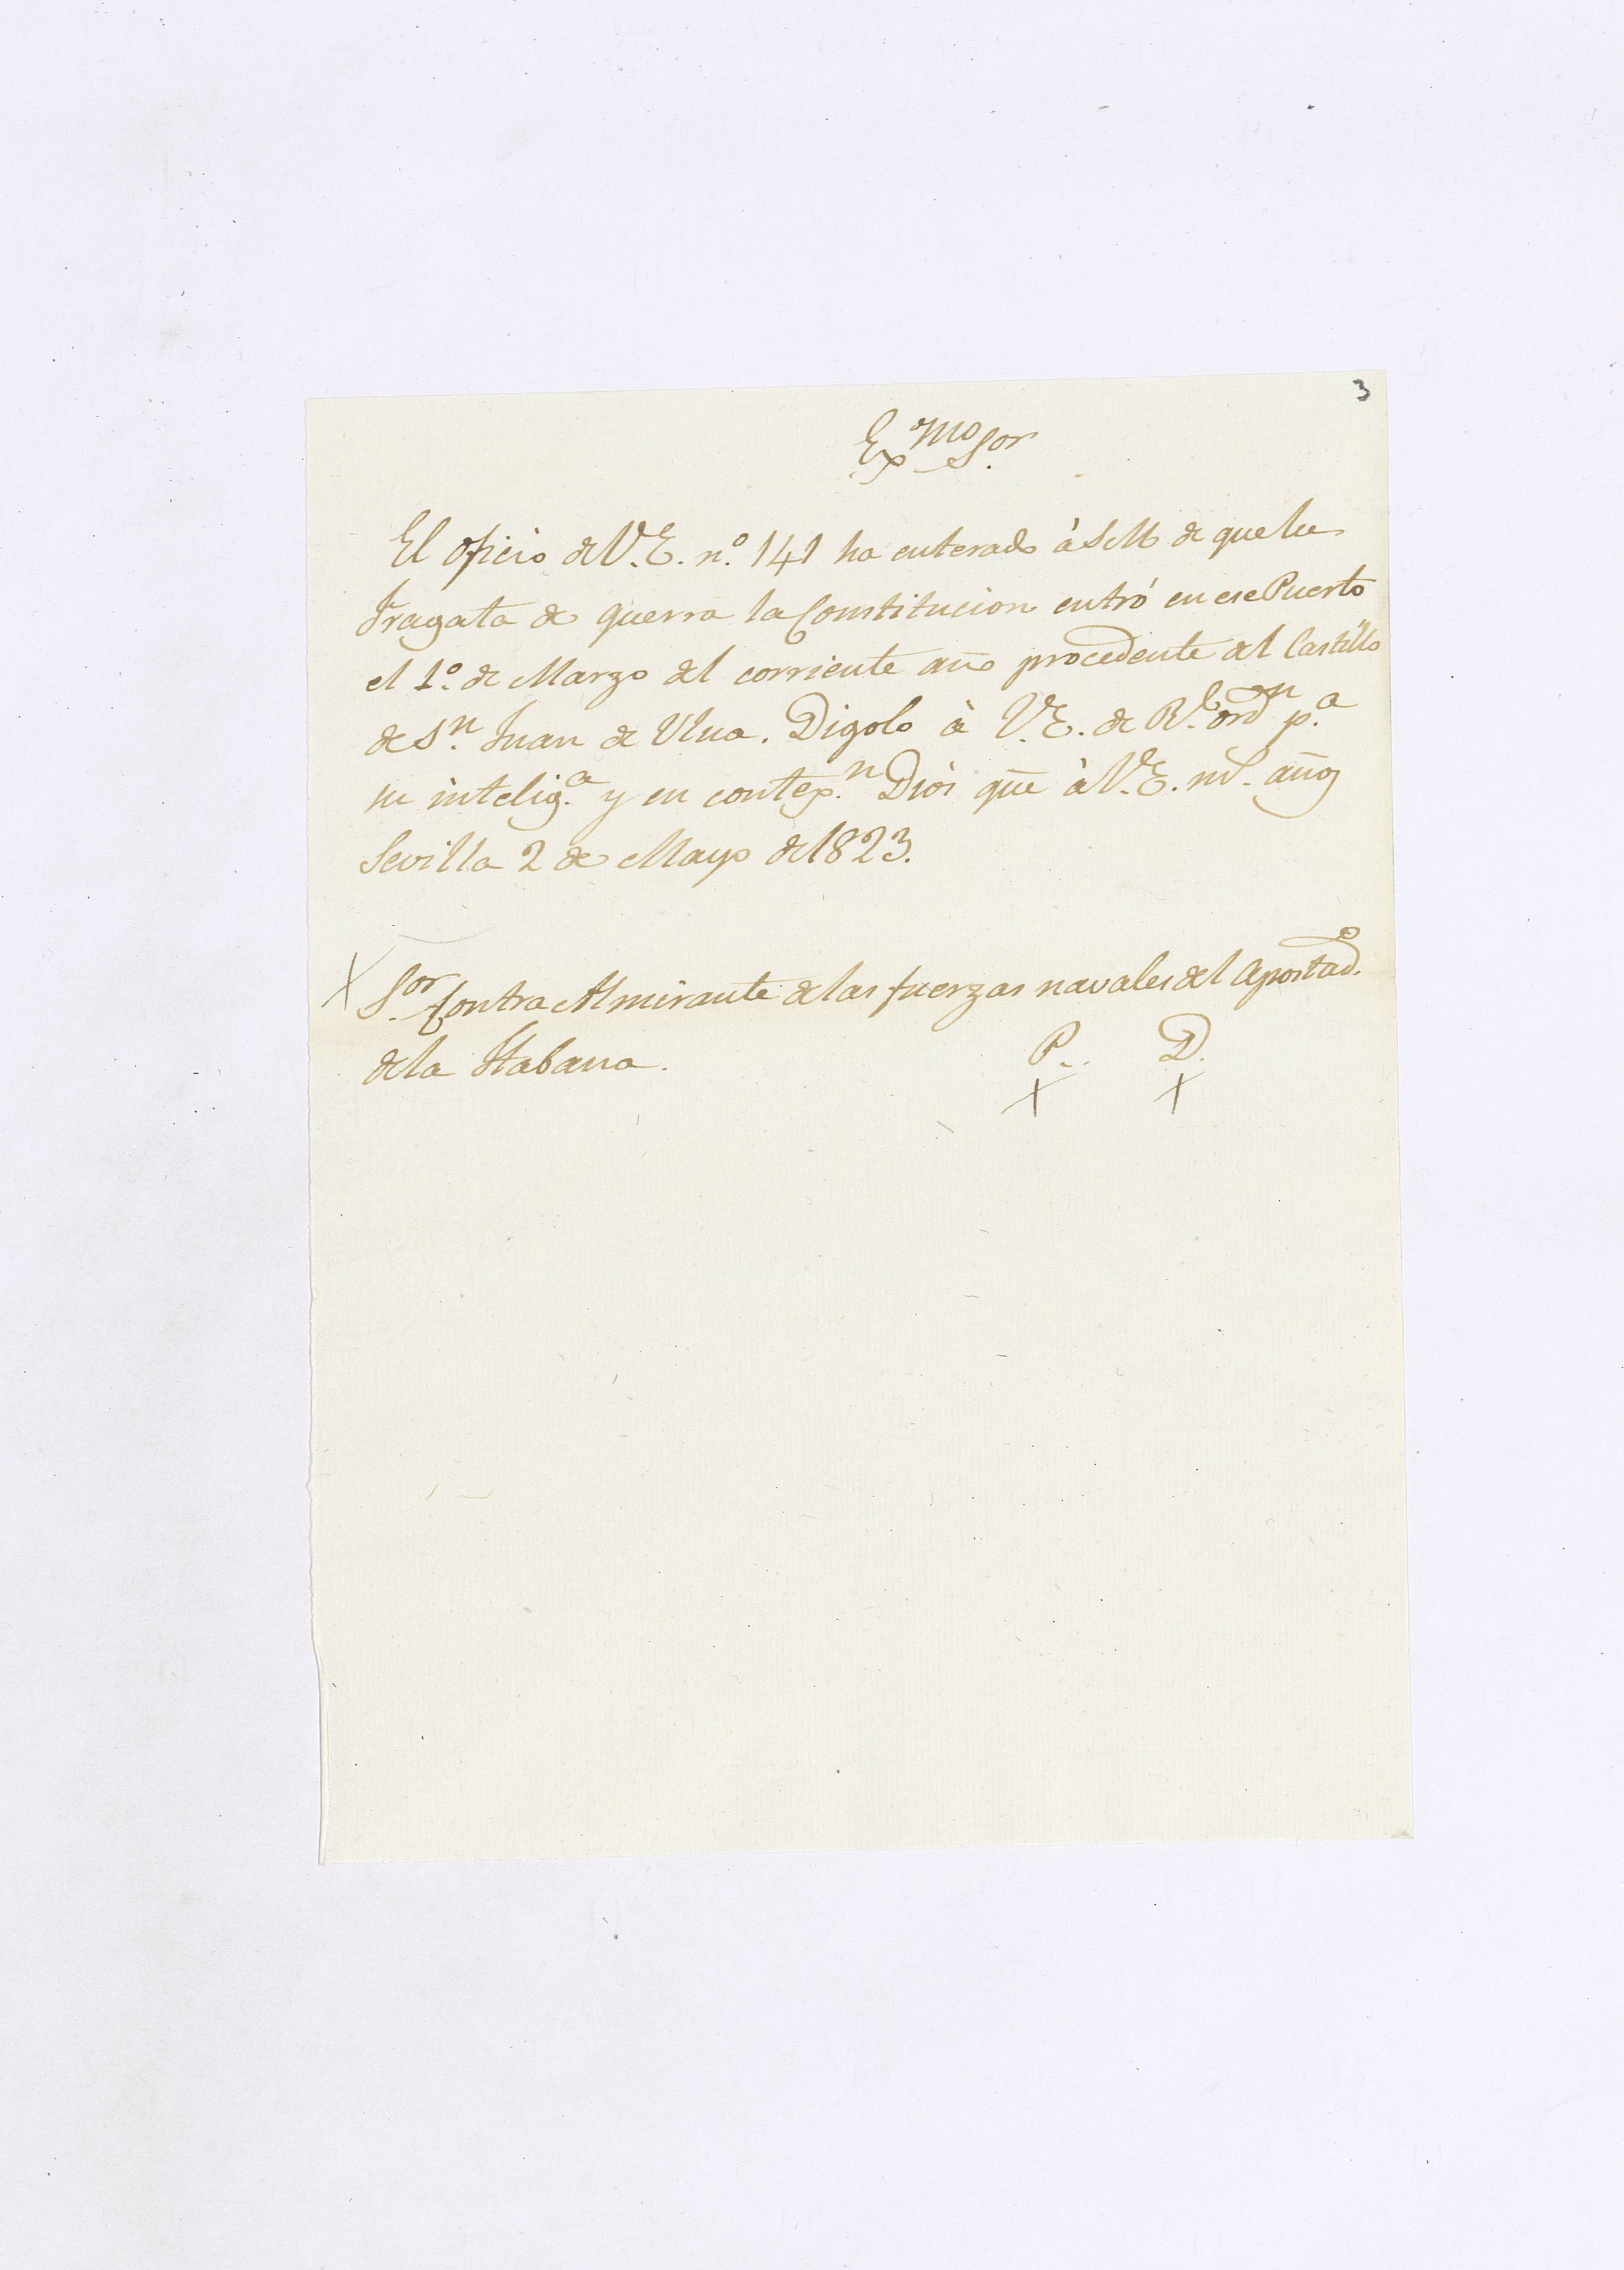 3
Exmo Sor
El oficio de V.E. n.º 141 ha enterado à S M de que la
Fragata de guerra la Constitucion entró en ese Puerto
el 1.º de Marzo del corriente año procedente del Castillo
de Sn. Juan de Ulua. Digolo à V.E. de Rl. ordn p.a
su intelig.a y en contex.n Dios gue à V.E. ms. años
Sevilla 2 de Mayo de 1823.
X Sor. Contra Almirante de las fuerzas navales del Apostad.o
de la Habana.
P. D.
X X